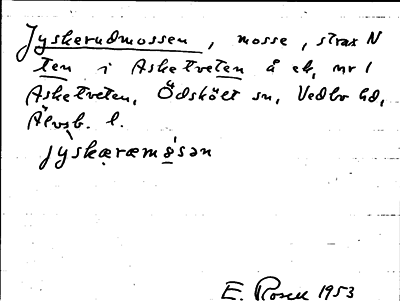 Jyskerudmossen, mosse, strax N
ten i Asketveten å ek, nr 1
Asketveten, Ödskölt sn, Vedbo hd,
Älvsb. l.
jyskæræmɵ̀sən
E. Rosell 1953